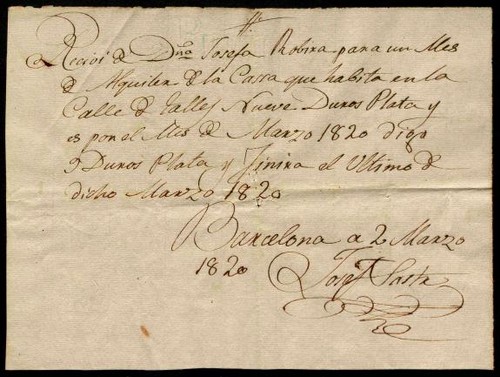 Recivi de Dña Josefa Robira para un Mes
de Alquiler de la Casa que habita en la
Calle de Talles Nueve Duros Plata y
es por el Mes de Marzo 1820 digo
9 Duros Plata y finira el Ultimo de
dicho Marzo 1820
Barcelona a 2 Marzo
1820
Josef Sastr